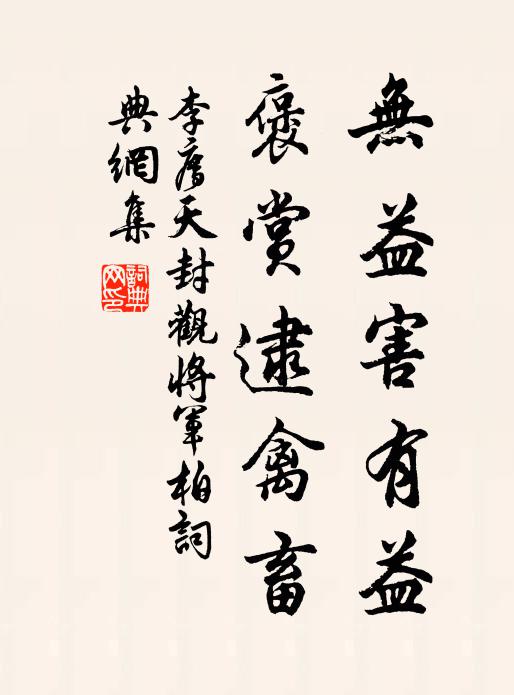 無益害有益
褒賞逮禽畜
李廌天封觀將軍柏詞
典網集
詞典網印